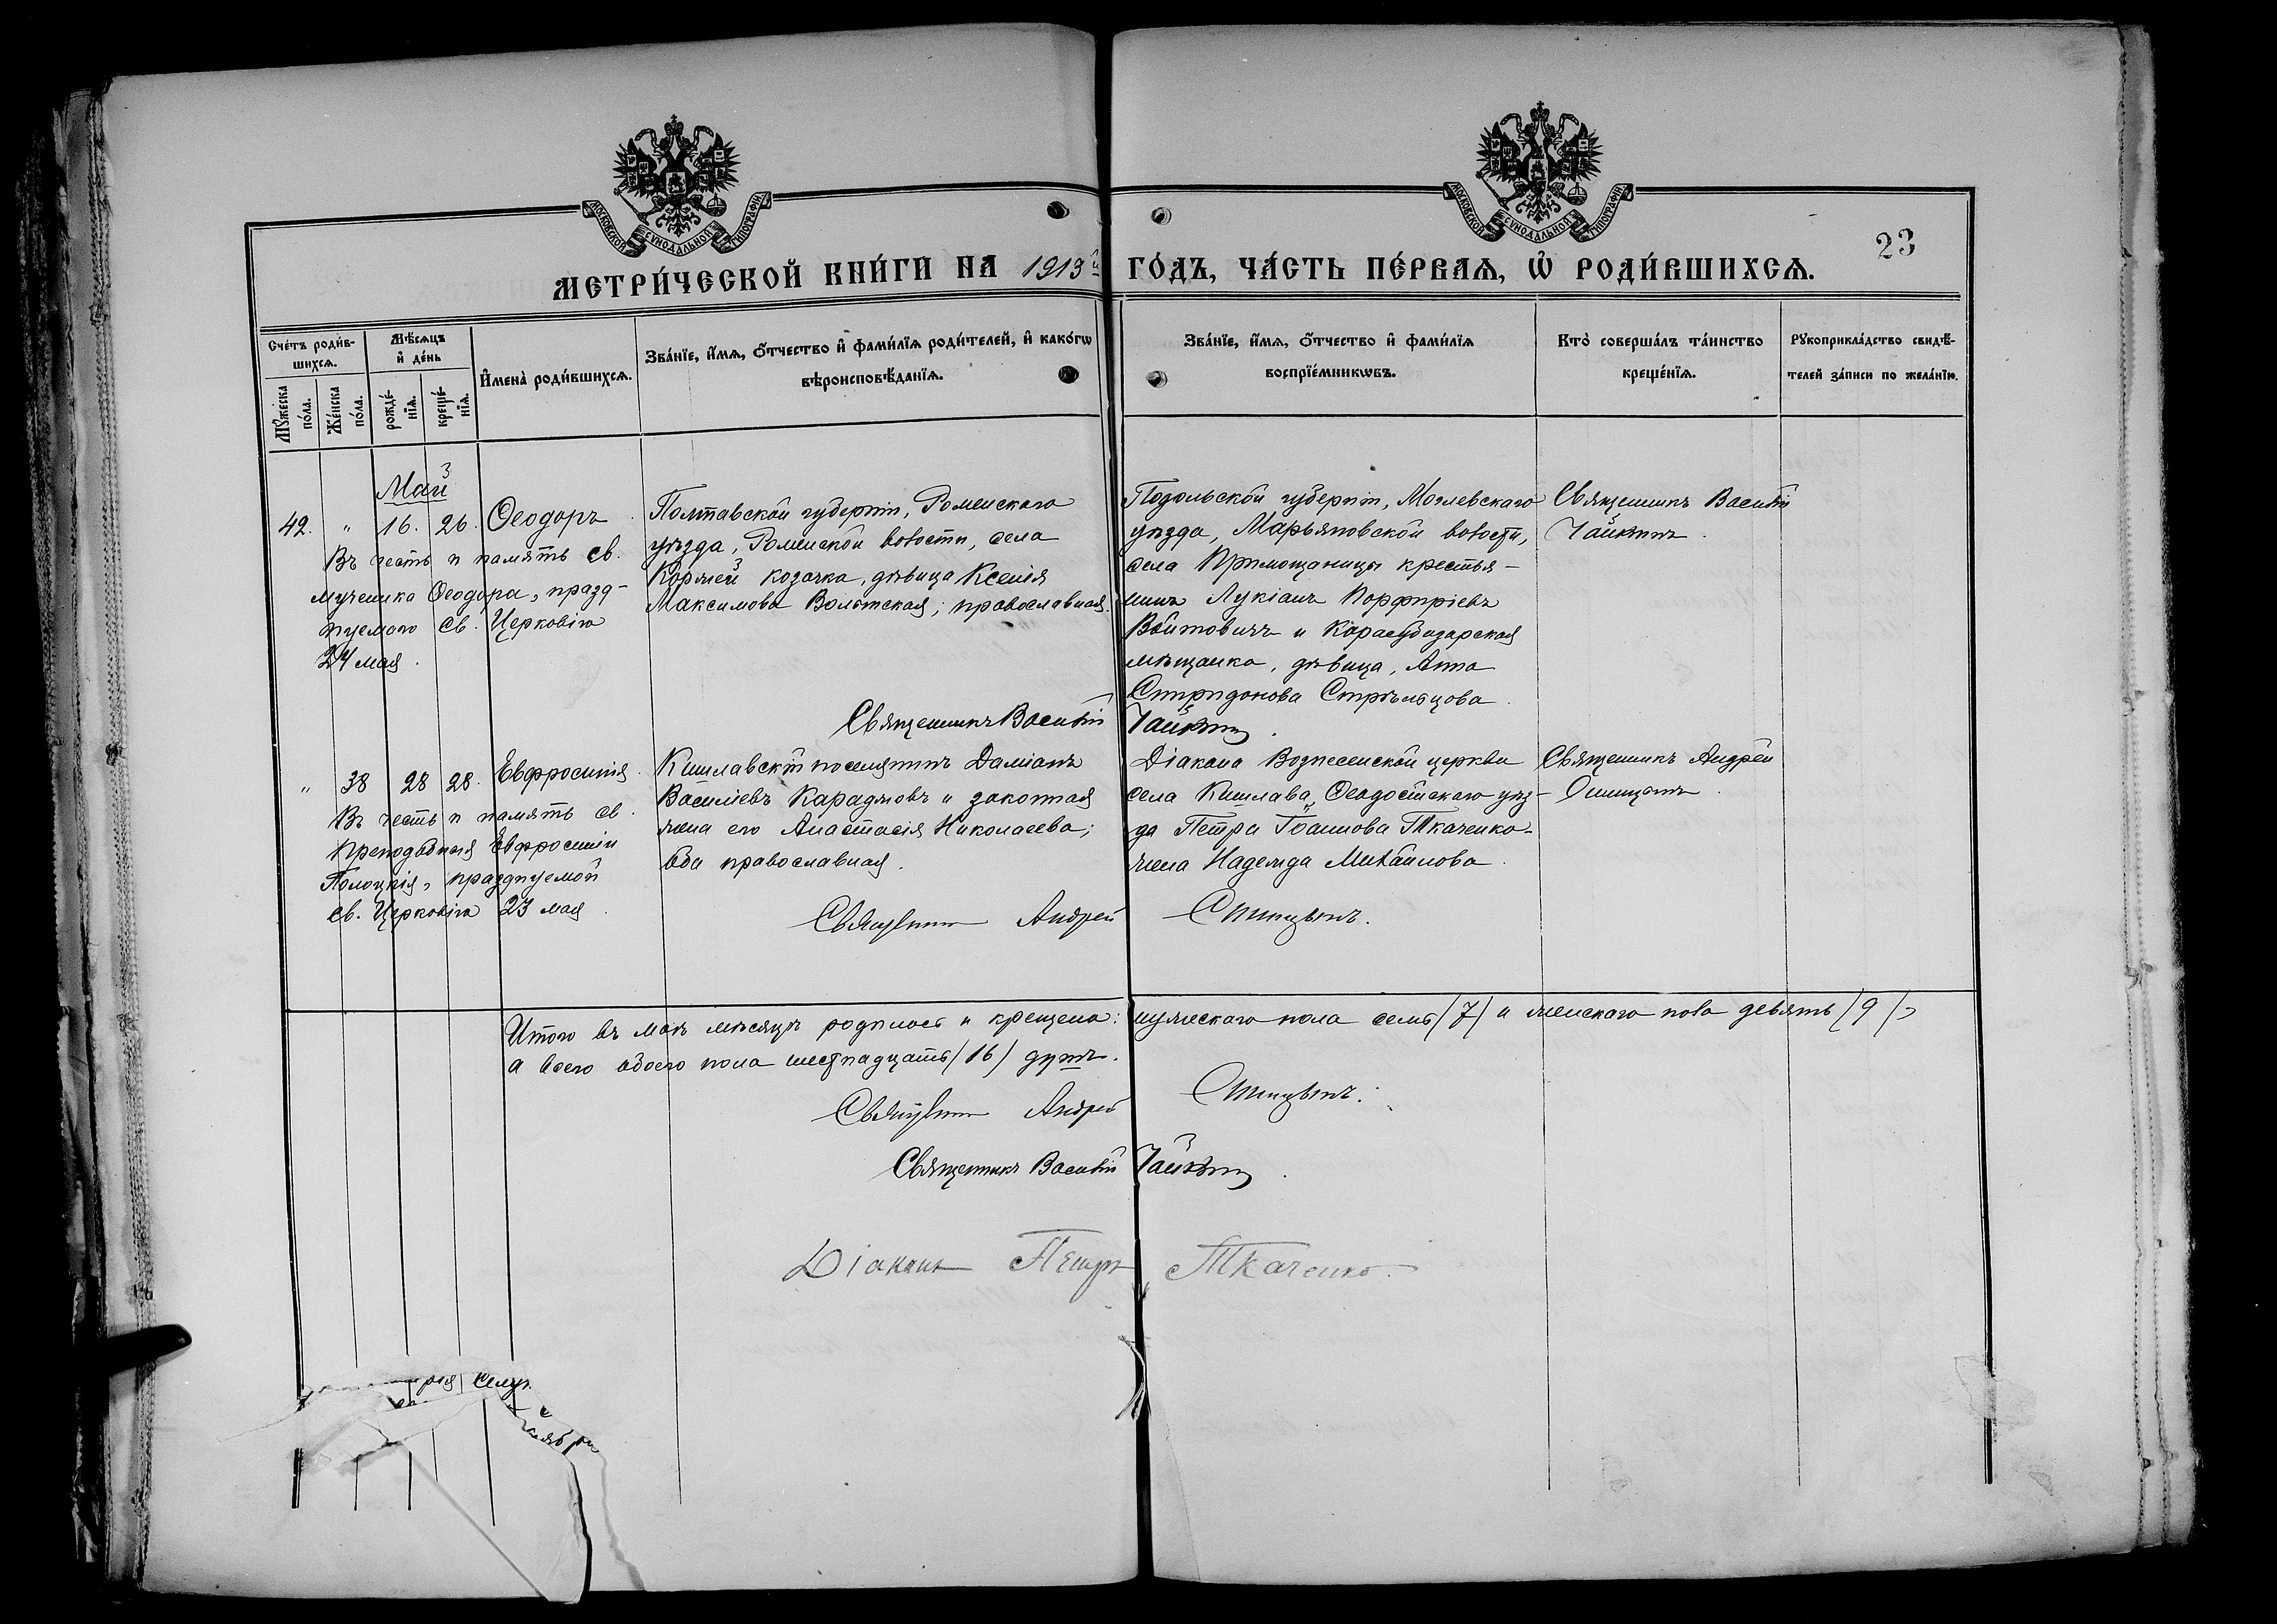 МОСКОВСКОЙ СѴНОДАЛЬНОЙ ТИПОГРАФІИ
МОСКОВСКОЙ СѴНОДАЛЬНОЙ ТИПОГРАФІИ
23
МЕТРИ́ЧЕСКОЙ КНИ́ГИ НА 1913й ГО́ДЪ, ЧА́СТЬ ПЕ́РВАѦ, Ѽ РОДИ́ВШИХСѦ.
Сче́тъ роди́в-
шихсѧ.
Мѣ́сѧцъ
и҆ де́нь
Мꙋ́жеска
по́ла.
Же́нска
по́ла.
рожде́-
нїѧ.
креще́-
нїѧ.
И҆мена̀ роди́вшихсѧ.
Зва́нїе, и҆́мѧ, ѻ҆́тчество и҆ фами́лїѧ роди́телей, и҆ како́гѡ
вѣроисповѣ́данїѧ.
Зва́нїе, и҆́мѧ, ѻ҆́тчество и҆ фами́лїѧ
воспрїе́мникѡвъ.
Кто̀ соверша́лъ та́инство
креще́нїѧ.
Рꙋкоприкла́дство свидѣ́-
телей за́писи по жела́нїю.
Май
42. " 16. 26. Ѳеодоръ
Въ честь и память св.
мученика Ѳеодора, празд-
нуемаго св. Церковію
24 мая.
Полтавской губерніи, Роменскаго
уѣзда, Роменской волости, села
козачка, дѣвица Ксенія
Максимова Вольтская; православная.
Подольской губерніи, Могилевскаго
уѣзда, Марьяновской волости,
села крестья-
нинъ Лукіанъ Порфиріевъ
Войтовичъ и Карасубазарская
мѣщанка, дѣвица, Анна
Спиридонова Стрѣльцова.
Священникъ Василій
Чайкинъ.
Священникъ Василій Чайкинъ.
" 38 28 28. Евфросинія
Въ честь и память св.
Преподобныя Евфросиніи
Полоцкія, празднуемой
св. Церковію 23 мая.
Кишлавскій поселянинъ Даміанъ
Василіевъ Караджовъ и законная
жена его Анастасія Николаева;
оба православная.
Діакона Вознесенской церкви
села Кишлава, Ѳеодосійскаго уѣз-
да Петра Іоаннова Ткаченко-
жена Надежда Михайлова.
Священникъ Андрей
Спицынъ.
Священникъ Андрей Спицынъ.
Итого въ маѣ мѣсяцѣ родилось и крещено: мужескаго пола семь (7) и женскаго пола девять (9),
а всего обоего пола шестнадцать (16) душъ.
Священникъ Андрей Спицынъ.
Священникъ Василій Чайкинъ.
Діаконъ Петръ Ткаченко.